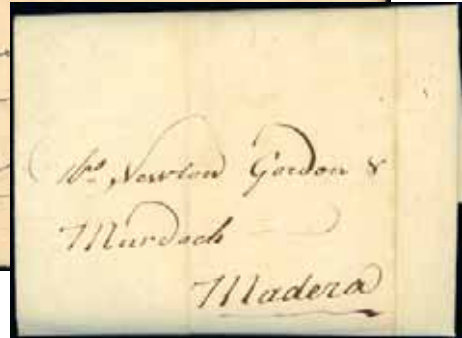 Newton Gordon &
Murdoch
Madera